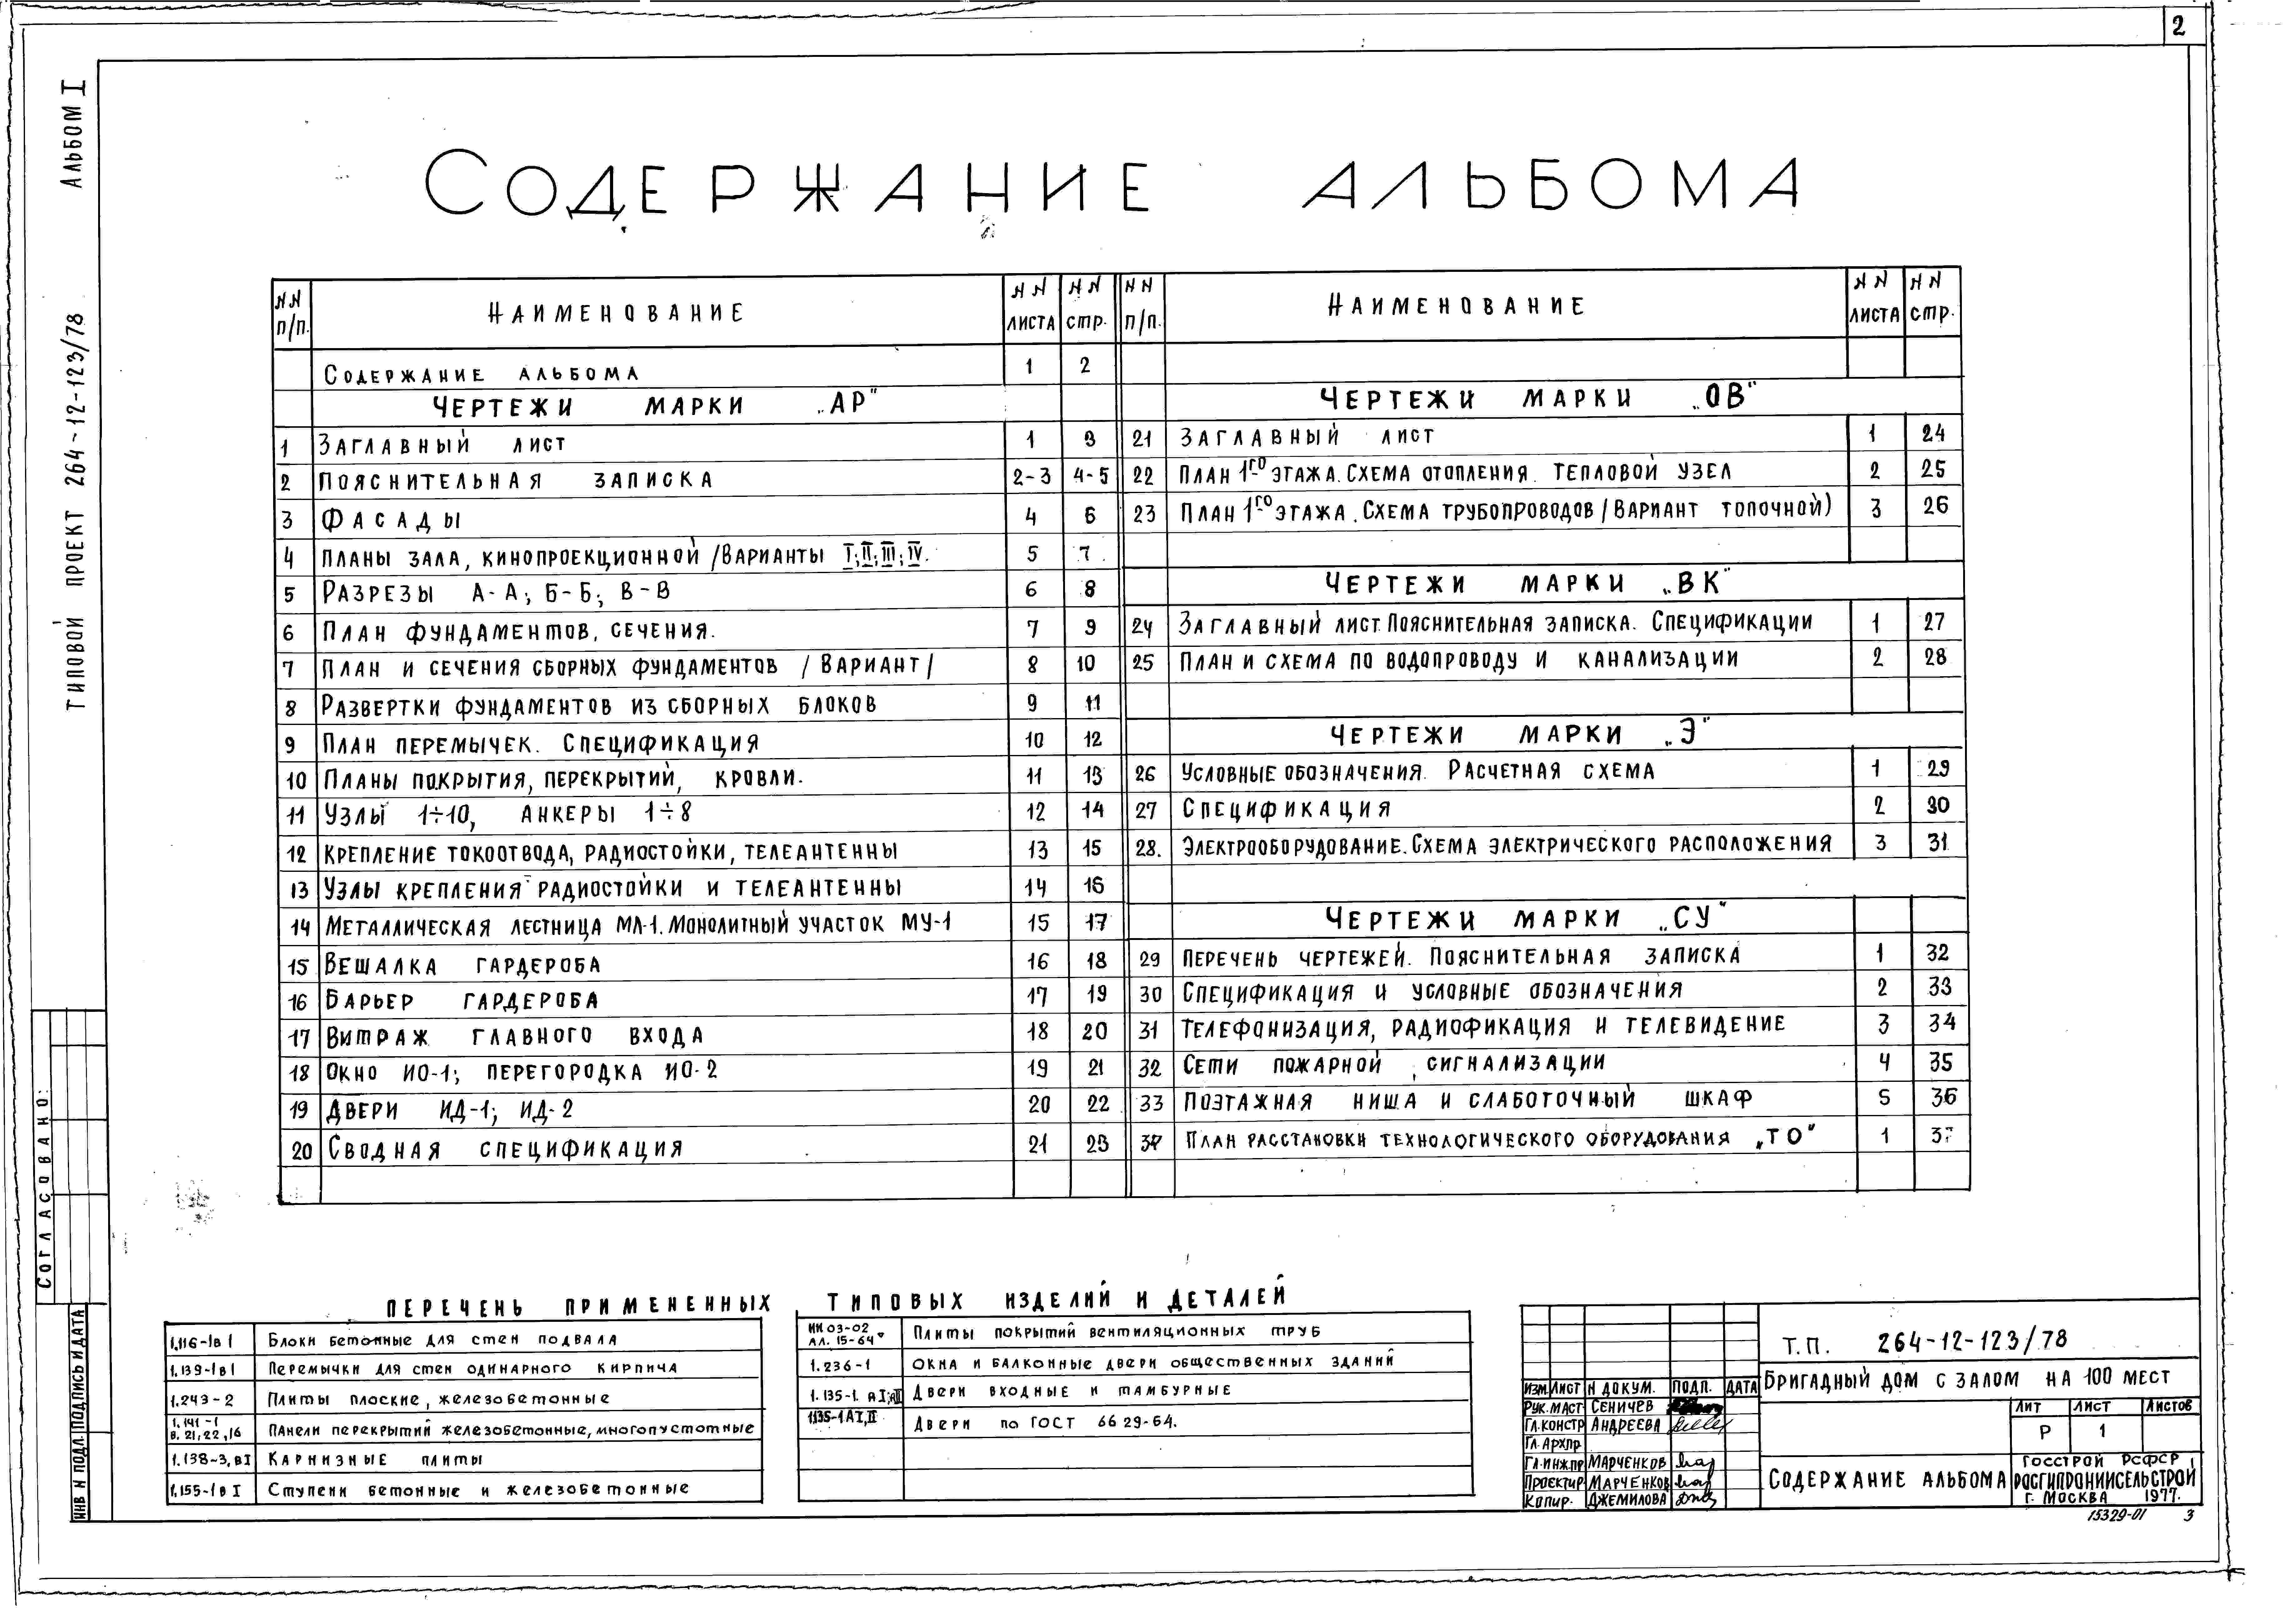 2
АЛЬБОМ I
ТИПОВОЙ ПРОЕКТ 264-12-123/78
СОДЕРЖАНИЕ АЛЬБОМА
NN п/п. НАИМЕНОВАНИЕ NN ЛИСТА NN стр.
СОДЕРЖАНИЕ АЛЬБОМА 1 2
ЧЕРТЕЖИ МАРКИ „АР"
1 ЗАГЛАВНЫЙ ЛИСТ 1 3
2 ПОЯСНИТЕЛЬНАЯ ЗАПИСКА 2-3 4-5
3 ФАСАДЫ 4 6
4 ПЛАНЫ ЗАЛА, КИНОПРОЕКЦИОННОЙ /ВАРИАНТЫ I; II; III; IV. 5 7
5 РАЗРЕЗЫ А-А; Б-Б; В-В 6 8
6 ПЛАН ФУНДАМЕНТОВ, СЕЧЕНИЯ. 7 9
7 ПЛАН И СЕЧЕНИЯ СБОРНЫХ ФУНДАМЕНТОВ /ВАРИАНТ/ 8 10
8 РАЗВЕРТКИ ФУНДАМЕНТОВ ИЗ СБОРНЫХ БЛОКОВ 9 11
9 ПЛАН ПЕРЕМЫЧЕК. СПЕЦИФИКАЦИЯ 10 12
10 ПЛАНЫ ПОКРЫТИЯ, ПЕРЕКРЫТИЙ, КРОВЛИ. 11 13
11 УЗЛЫ 1÷10, АНКЕРЫ 1÷8 12 14
12 КРЕПЛЕНИЕ ТОКООТВОДА, РАДИОСТОЙКИ, ТЕЛЕАНТЕННЫ 13 15
13 УЗЛЫ КРЕПЛЕНИЯ РАДИОСТОЙКИ И ТЕЛЕАНТЕННЫ 14 16
14 МЕТАЛЛИЧЕСКАЯ ЛЕСТНИЦА МЛ-1. МОНОЛИТНЫЙ УЧАСТОК МУ-1 15 17
15 ВЕШАЛКА ГАРДЕРОБА 16 18
16 БАРЬЕР ГАРДЕРОБА 17 19
17 ВИТРАЖ ГЛАВНОГО ВХОДА 18 20
18 ОКНО ИО-1; ПЕРЕГОРОДКА ИО-2 19 21
19 ДВЕРИ ИД-1; ИД-2 20 22
20 СВОДНАЯ СПЕЦИФИКАЦИЯ 21 23
NN п/п. НАИМЕНОВАНИЕ NN ЛИСТА NN стр.
ЧЕРТЕЖИ МАРКИ „ОВ"
21 ЗАГЛАВНЫЙ ЛИСТ 1 24
22 ПЛАН 1го ЭТАЖА. СХЕМА ОТОПЛЕНИЯ. ТЕПЛОВОЙ УЗЕЛ 2 25
23 ПЛАН 1го ЭТАЖА. СХЕМА ТРУБОПРОВОДОВ /ВАРИАНТ ТОПОЧНОЙ) 3 26
ЧЕРТЕЖИ МАРКИ „ВК"
24 ЗАГЛАВНЫЙ ЛИСТ. ПОЯСНИТЕЛЬНАЯ ЗАПИСКА. СПЕЦИФИКАЦИИ 1 27
25 ПЛАН И СХЕМА ПО ВОДОПРОВОДУ И КАНАЛИЗАЦИИ 2 28
ЧЕРТЕЖИ МАРКИ „Э"
26 УСЛОВНЫЕ ОБОЗНАЧЕНИЯ. РАСЧЕТНАЯ СХЕМА 1 29
27 СПЕЦИФИКАЦИЯ 2 30
28. ЭЛЕКТРООБОРУДОВАНИЕ. СХЕМА ЭЛЕКТРИЧЕСКОГО РАСПОЛОЖЕНИЯ 3 31
ЧЕРТЕЖИ МАРКИ „СУ"
29 ПЕРЕЧЕНЬ ЧЕРТЕЖЕЙ. ПОЯСНИТЕЛЬНАЯ ЗАПИСКА 1 32
30 СПЕЦИФИКАЦИЯ И УСЛОВНЫЕ ОБОЗНАЧЕНИЯ 2 33
31 ТЕЛЕФОНИЗАЦИЯ, РАДИОФИКАЦИЯ И ТЕЛЕВИДЕНИЕ 3 34
32 СЕТИ ПОЖАРНОЙ СИГНАЛИЗАЦИИ 4 35
33 ПОЭТАЖНАЯ НИША И СЛАБОТОЧНЫЙ ШКАФ 5 36
34 ПЛАН РАССТАНОВКИ ТЕХНОЛОГИЧЕСКОГО ОБОРУДОВАНИЯ „ТО" 1 37
СОГЛАСОВАНО:
ИНВ N ПОДЛ. ПОДПИСЬ И ДАТА
ПЕРЕЧЕНЬ ПРИМЕНЕННЫХ ТИПОВЫХ ИЗДЕЛИЙ И ДЕТАЛЕЙ
1.116-1 в 1 БЛОКИ БЕТОННЫЕ ДЛЯ СТЕН ПОДВАЛА
1.139-1 в 1 ПЕРЕМЫЧКИ ДЛЯ СТЕН ОДИНАРНОГО КИРПИЧА
1.243-2 ПЛИТЫ ПЛОСКИЕ, ЖЕЛЕЗОБЕТОННЫЕ
1.141-1 В. 21, 22, 16 ПАНЕЛИ ПЕРЕКРЫТИЙ ЖЕЛЕЗОБЕТОННЫЕ, МНОГОПУСТОТНЫЕ
1.138-3, в I КАРНИЗНЫЕ ПЛИТЫ
1.155-1 в I СТУПЕНИ БЕТОННЫЕ И ЖЕЛЕЗОБЕТОННЫЕ
ИИ 03-02 АЛ. 15-64 ПЛИТЫ ПОКРЫТИЙ ВЕНТИЛЯЦИОННЫХ ТРУБ
1.236-1 ОКНА И БАЛКОННЫЕ ДВЕРИ ОБЩЕСТВЕННЫХ ЗДАНИЙ
1.135-1. ДВЕРИ ВХОДНЫЕ И ТАМБУРНЫЕ
1.135-1 А I, II ДВЕРИ ПО ГОСТ 6629-64.
ИЗМ. ЛИСТ N ДОКУМ. ПОДП. ДАТА
РУК. МАСТ СЕНИЧЕВ
ГЛ. КОНСТР АНДРЕЕВА
ГЛ. АРХ.ПР
ГЛ. ИНЖ.ПР МАРЧЕНКОВ
ПРОЕКТИР МАРЧЕНКОВ
КОПИР. ДЖЕМИЛОВА
Т.П. 264-12-123/78
БРИГАДНЫЙ ДОМ С ЗАЛОМ НА 100 МЕСТ
ЛИТ ЛИСТ ЛИСТОВ
Р 1
СОДЕРЖАНИЕ АЛЬБОМА
ГОССТРОЙ РСФСР
РОСГИПРОНИИСЕЛЬСТРОЙ
Г. МОСКВА 1977.
15329-01 3